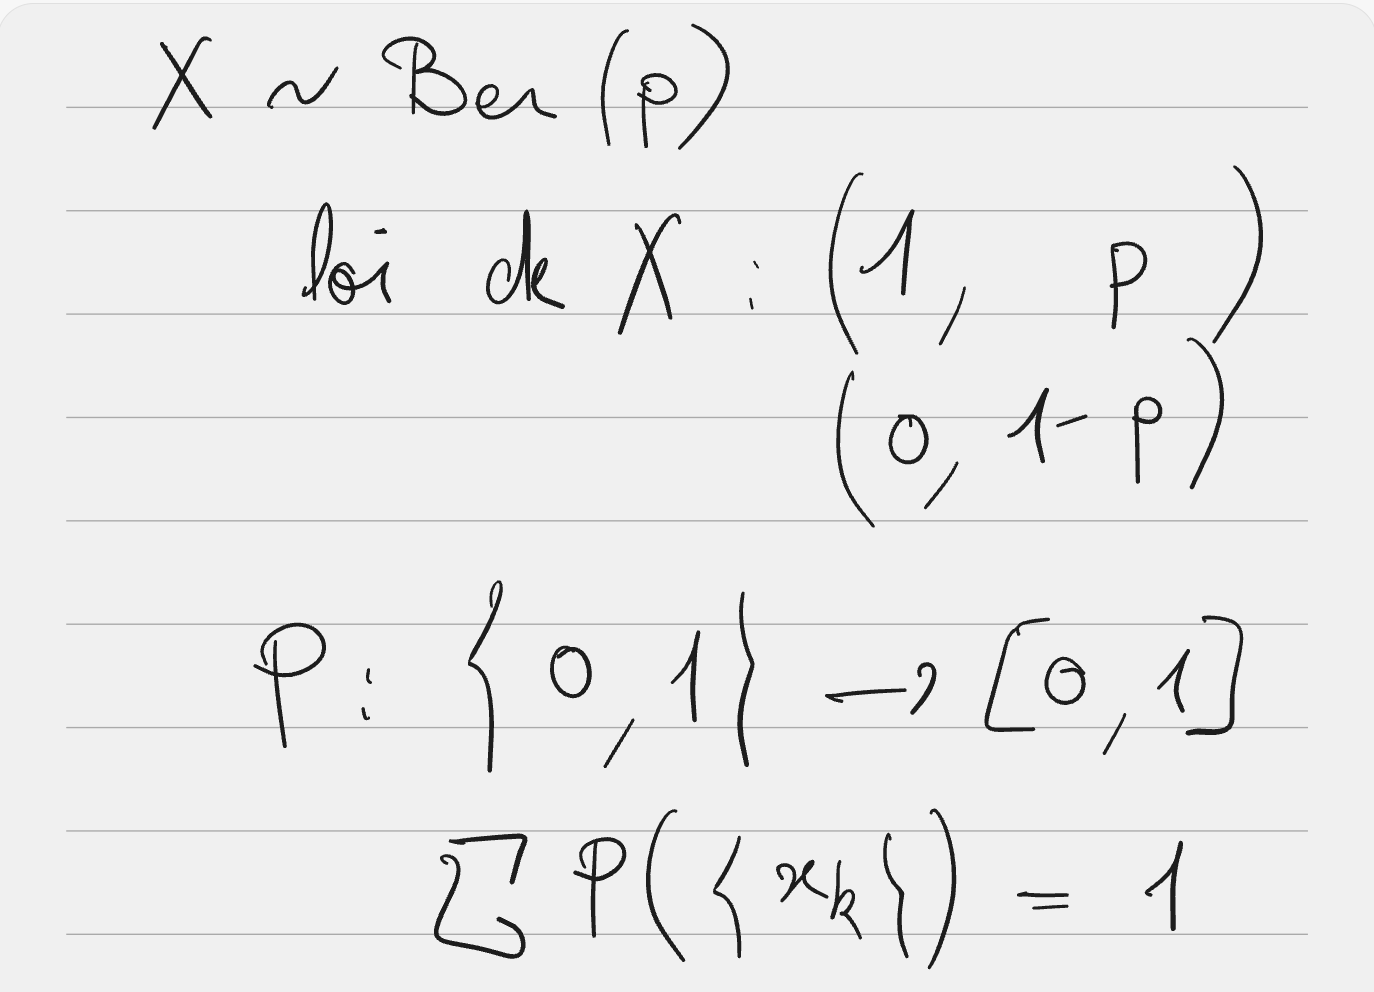 X ~ Ber (p)
loi de X : (1, p)
(0, 1-p)
P : {0, 1} → [0, 1]
∑ P({x_k}) = 1